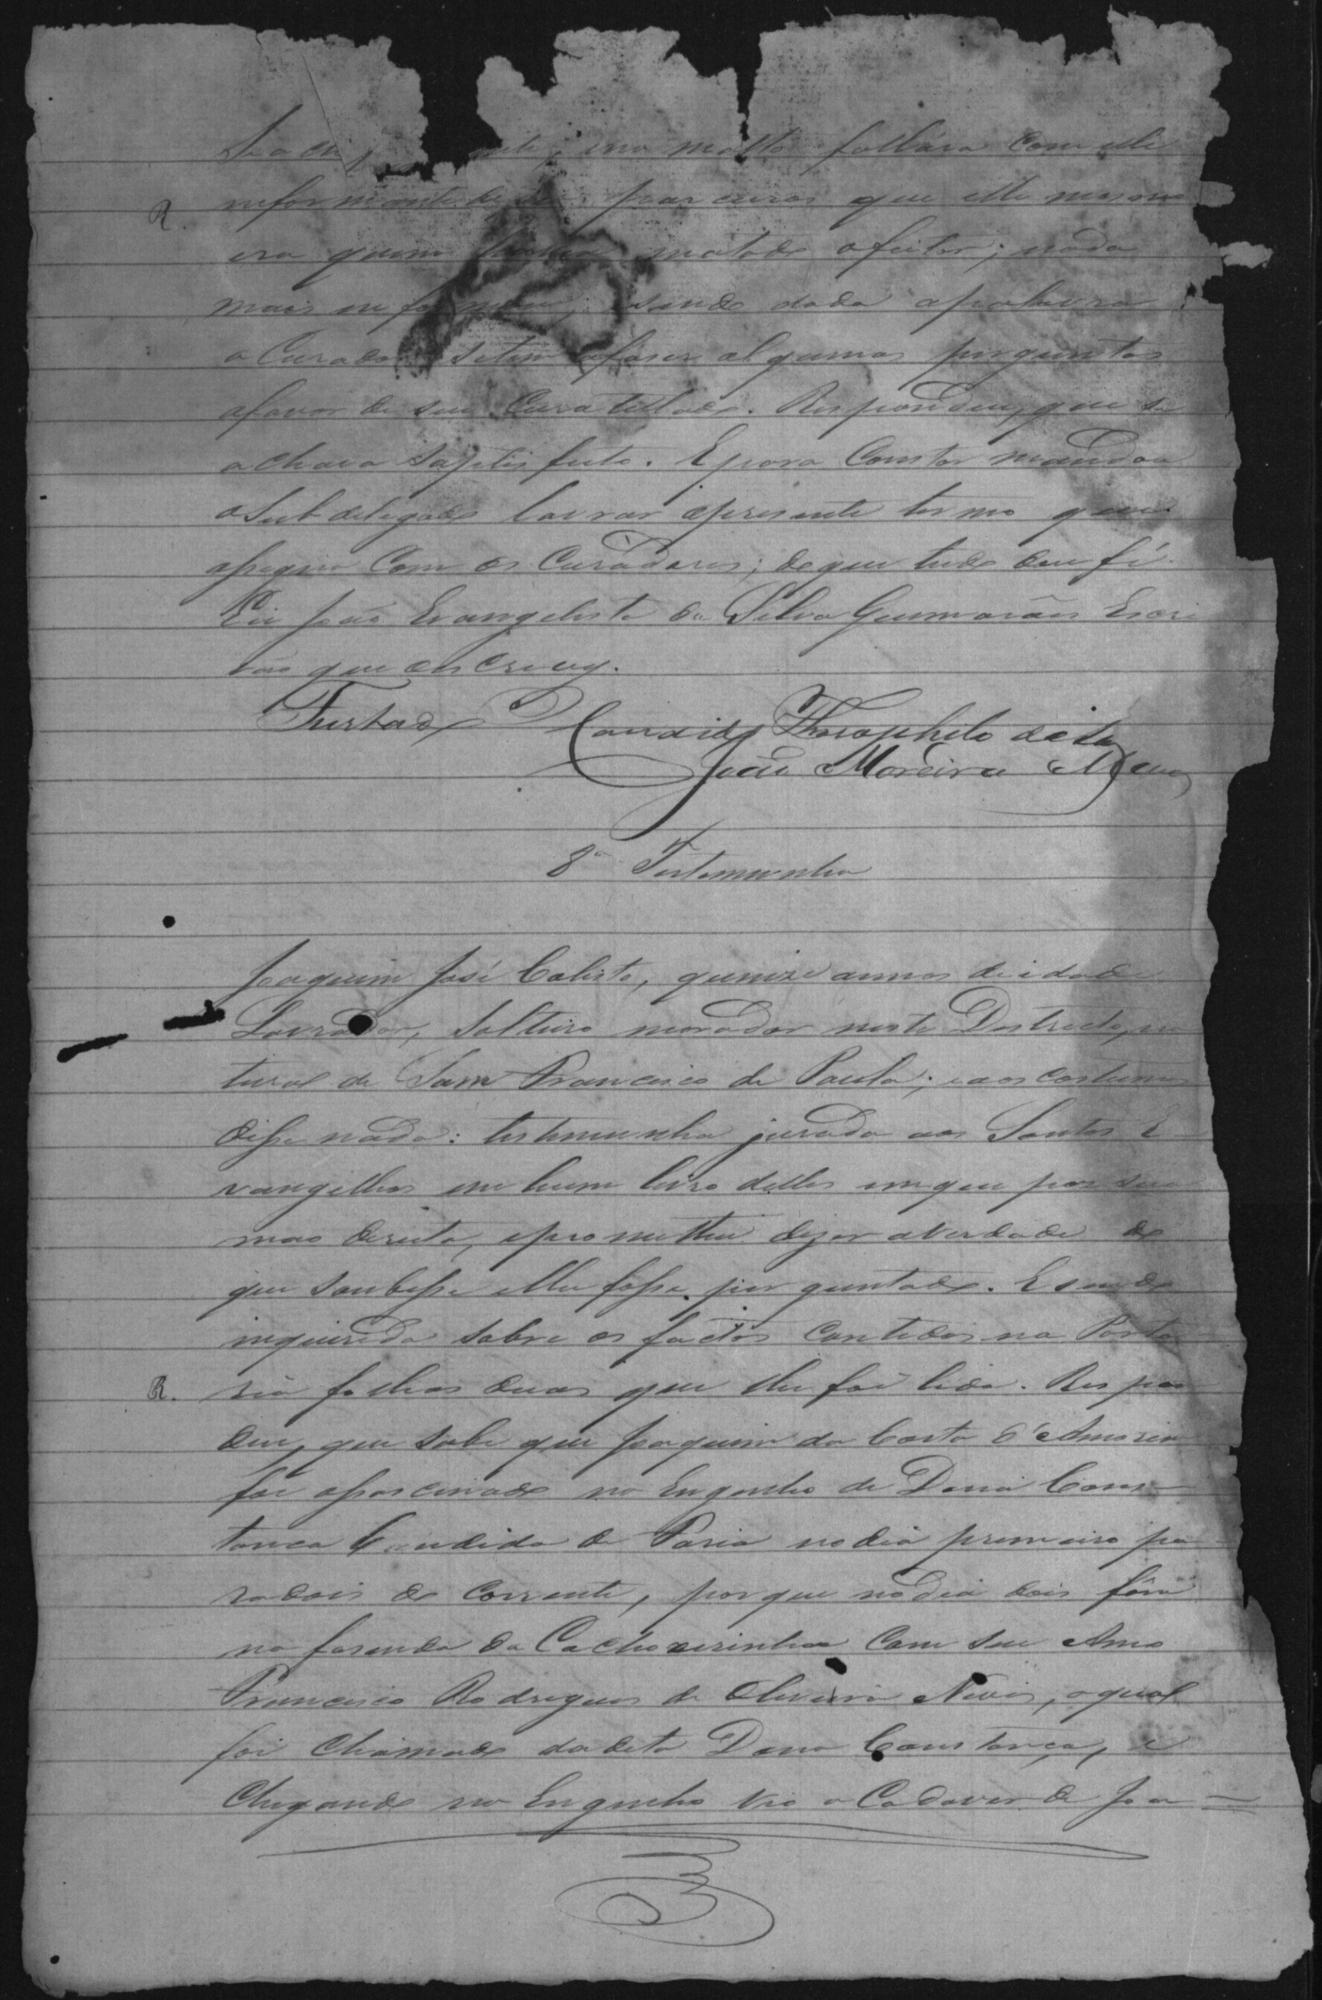 no matto fallára com elle
informante de parceiros que elle mesmo
R.
era quem havia matado o feitor; nada
mais informou; sendo dada a palavra
o Curador se tem afaser algumas perguntas
a favor de seu Curatellado. Respondeu, que se
achava satisfeito. E para Constar mandou
o Subdelegado lavrar opresente termo que
assigna Com os Curadores; de que tudo dou fé.
Eu João Evangelista da Silva Guimarães Escri
vão que escrevy.
Furtado Candido Theophilo de
João Moreira
8ª Testemunha
Joaquim José Calisto, quinze annos de idade
Lavrador, Solteiro morador neste Destricto, na
tural de Sam Francisco de Paula; e aos costumes
disse nada: testemunha jurada aos Santos E
vangelhos em hum livro delles em que pos sua
mão direita, e prometteu dizer a verdade do
que soubesse e lhe fosse perguntado. E sendo
inquirida sobre os factos contidos na Porta
R.
ria folhas duas que lhe foi lida. Respon
deu, que sabe que Joaquim da Costa d'Amorim
foi assascinado no Engenho de Dona Cons-
tanca Candida de Faria no dia primeiro pa
ra dois do corrente, porque no dia dois fôra
na fasenda da Cachoeirinha Com seu Amo
Francisco Rodrigues de Oliveira Neves, o qual
foi Chamado da dita Dona Constança, e
Chegando no Engenho vio o Cadaver de Joa